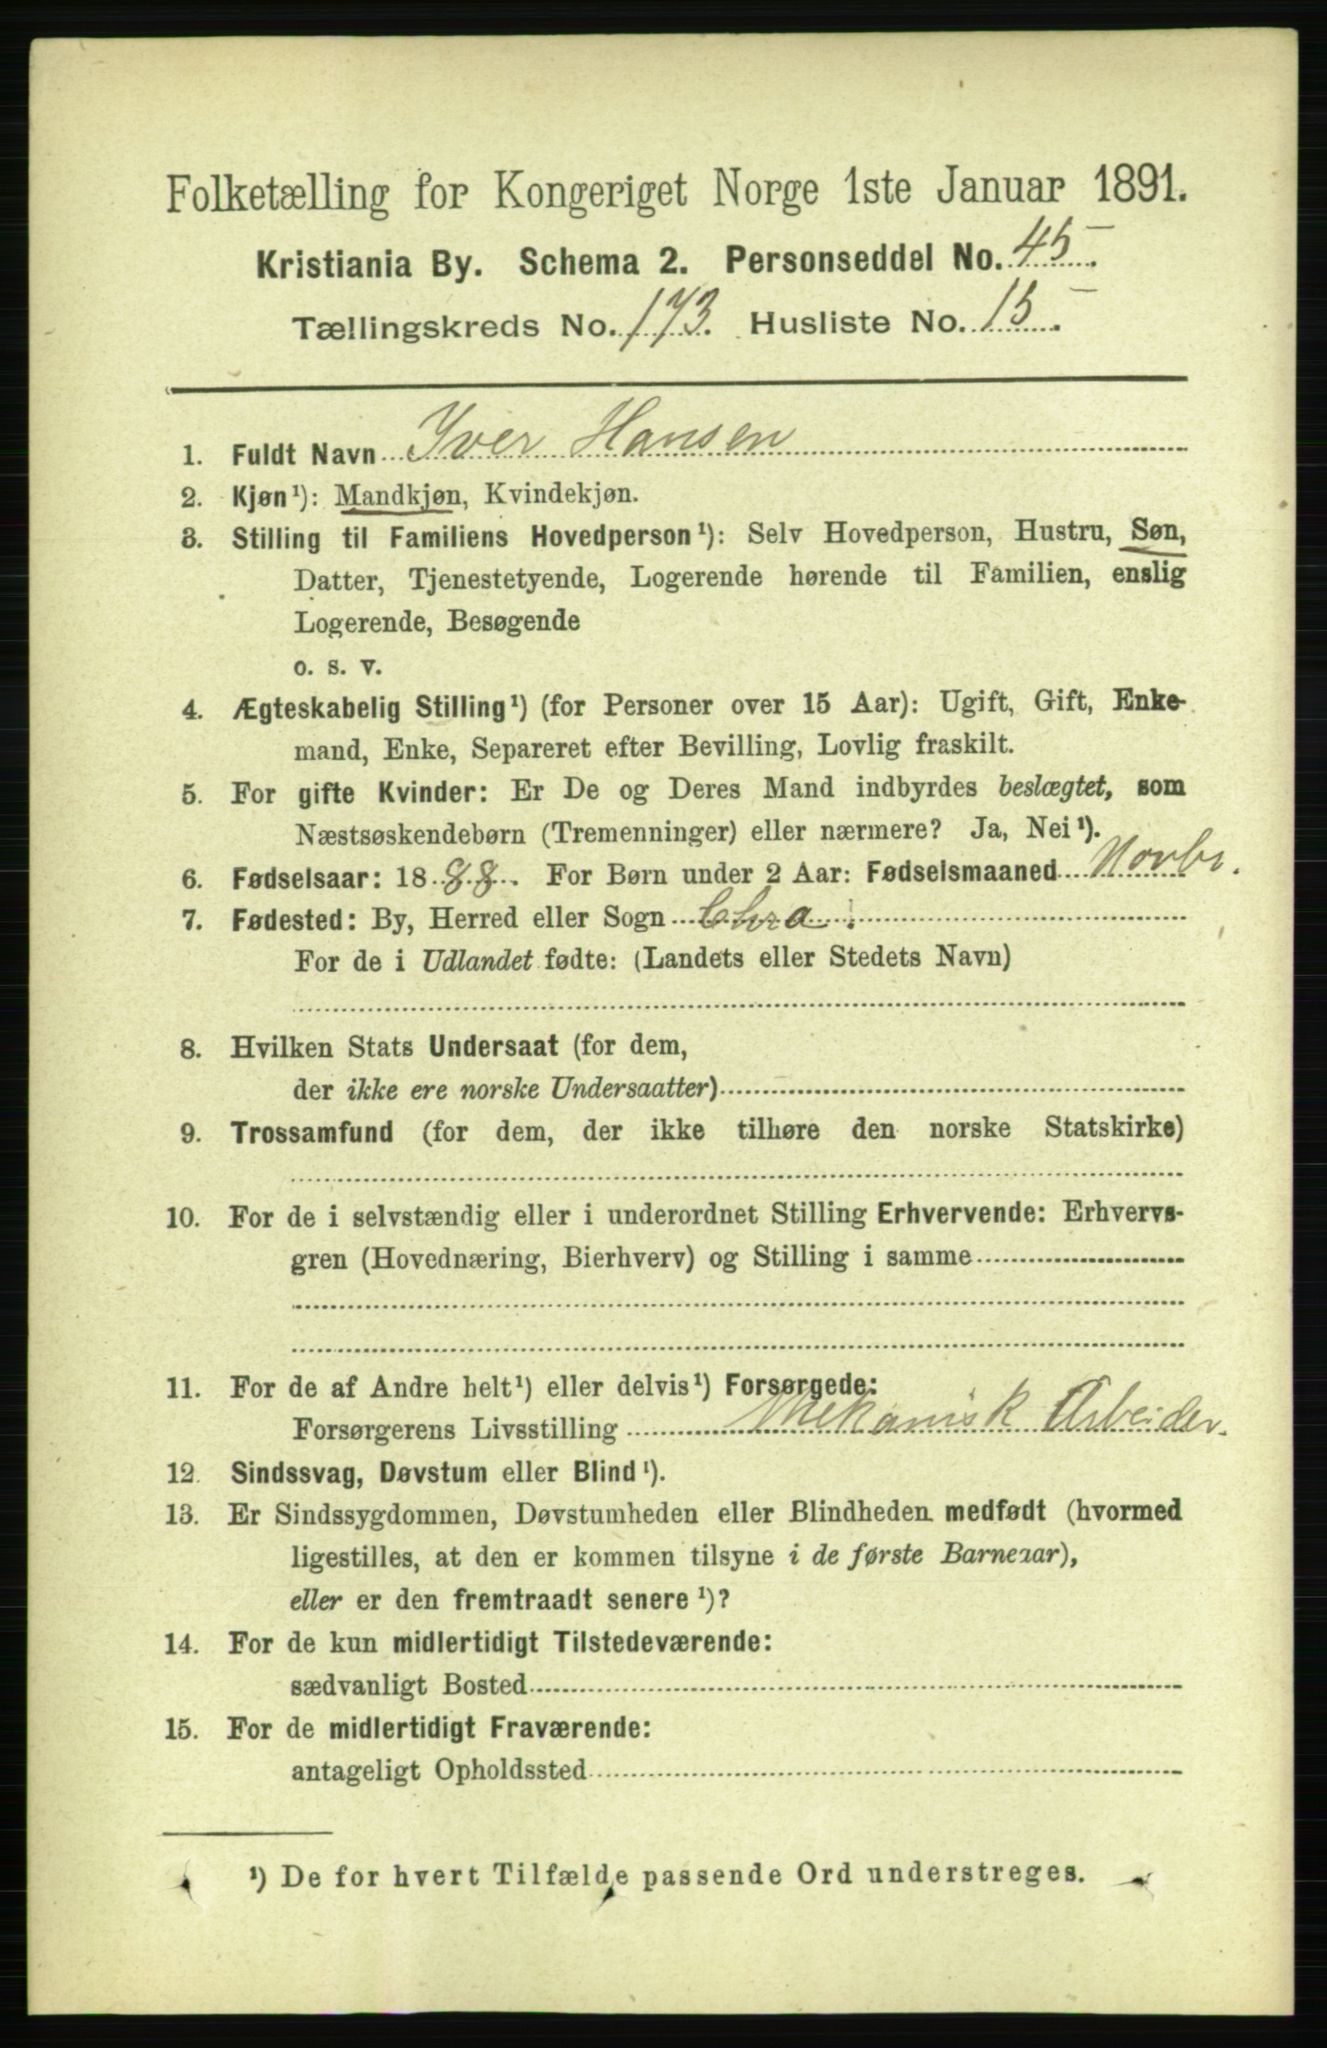 Folketælling for Kongeriget Norge 1ste Januar 1891.
Kristiania By. Schema 2. Personseddel No. 45.
Tællingskreds No. 173. Husliste No. 15.
1. Fuldt Navn Iver Hansen
2. Kjøn¹): Mandkjøn, Kvindekjøn.
3. Stilling til Familiens Hovedperson¹): Selv Hovedperson, Hustru, Søn,
Datter, Tjenestetyende, Logerende hørende til Familien, enslig
Logerende, Besøgende
o. s. v.
4. Ægteskabelig Stilling¹) (for Personer over 15 Aar): Ugift, Gift, Enke-
mand, Enke, Separeret efter Bevilling, Lovlig fraskilt.
5. For gifte Kvinder: Er De og Deres Mand indbyrdes beslægtet, som
Næstsøskendebørn (Tremenninger) eller nærmere? Ja, Nei¹).
6. Fødselsaar: 1888. For Børn under 2 Aar: Fødselsmaaned Novbr.
7. Fødested: By, Herred eller Sogn Chra.
For de i Udlandet fødte: (Landets eller Stedets Navn)
8. Hvilken Stats Undersaat (for dem,
der ikke ere norske Undersaatter)
9. Trossamfund (for dem, der ikke tilhøre den norske Statskirke)
10. For de i selvstændig eller i underordnet Stilling Erhvervende: Erhvervs-
gren (Hovednæring, Bierhverv) og Stilling i samme
11. For de af Andre helt¹) eller delvis¹) Forsørgede:
Forsørgerens Livsstilling Mekanisk Arbeider.
12. Sindssvag, Døvstum eller Blind¹).
13. Er Sindssygdommen, Døvstumheden eller Blindheden medfødt (hvormed
ligestilles, at den er kommen tilsyne i de første Barneaar),
eller er den fremtraadt senere¹)?
14. For de kun midlertidigt Tilstedeværende:
sædvanligt Bosted
15. For de midlertidigt Fraværende:
antageligt Opholdssted
¹) De for hvert Tilfælde passende Ord understreges.